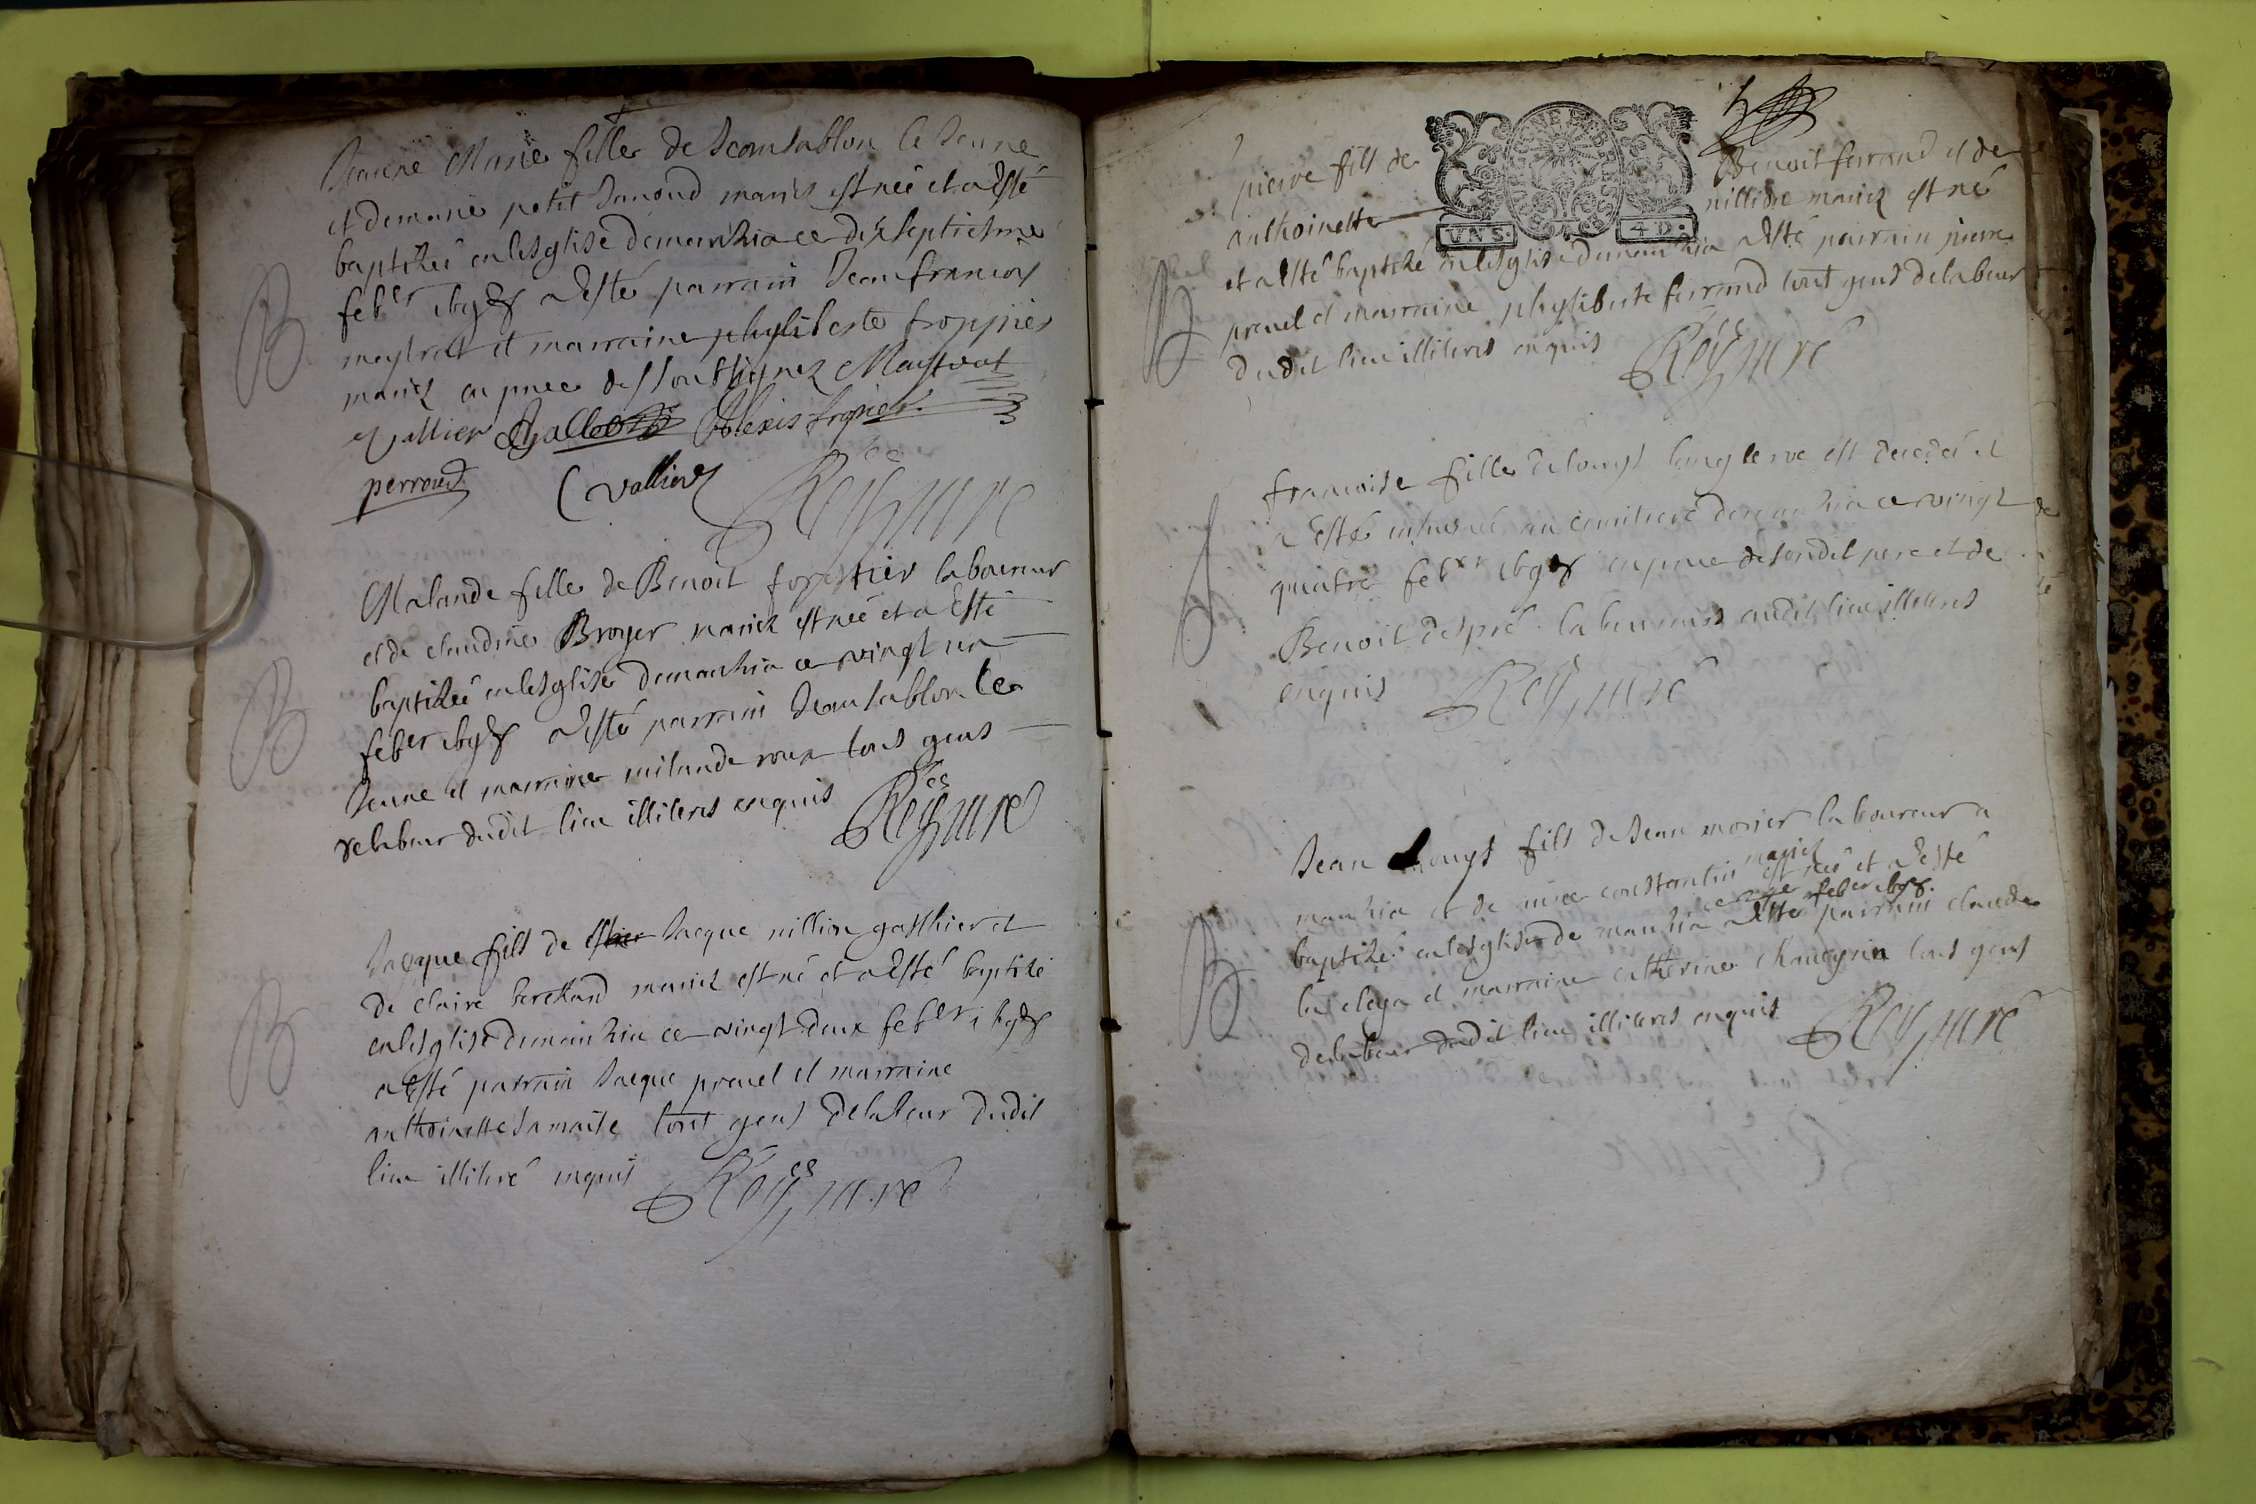 Jeanne Marie fille de Jean Sablon le Jeune
et de marie petit Janond mariés est née et a Esté
baptisée en lesglise de manzia ce dixseptiesme
feb^er a Esté parrain Jean francois
maystrat et marraine phyliberte froppier
mariez en pnce des soubsignez Maystrat
Vallier Alexis fropier
perroud C vallier Rey curé
B
Malande fille de Benoit forestier laboureur
et de claudine Broyer mariez est née et a Esté
baptisée en lesglise de manzia ce vingt un
feb^er a Esté parrain Jean Sablon le
Jeune et marraine milande roux tous gens
de labeur dudit lieu illiteres enquis Rey curé
B
Jacque fils de Jacque nillion gatthier et
de claire berthard mariez est né et a Esté baptisé
en lesglise de manzia ce vingt deux feb^er
a Esté parrain Jacque prevel et marraine
anthoinette Jamaite tout gens de labeur dudit
lieu illiteré enquis Rey curé
B
pierre fils de Benoit ferrand et de
anthoinette nillion mariez est né
VN S. 4 D.
et a Esté baptisé en lesglise de manzia a Esté parrain pierre
prevel et marraine phyliberte ferrand tout gens de labeur
dudit lieu illiteres enquis Rey curé
B
francoise fille de louys est decedée et
a Esté inhumée au cimitiere de manzia ce vingt
quatre feb^er en pnce de sondit pere et de
Benoit despré laboureurs audit lieu illiteres
enquis Rey curé
Jean Louys fils de Jean monier laboureur a
manzia et de constantin mariez est né et a esté
baptisé en lesglise de manzia ce feb^er a Esté parrain claude
et marraine catherine chavagnin tous gens
de labeur dudit lieu illiteres enquis Rey curé
B